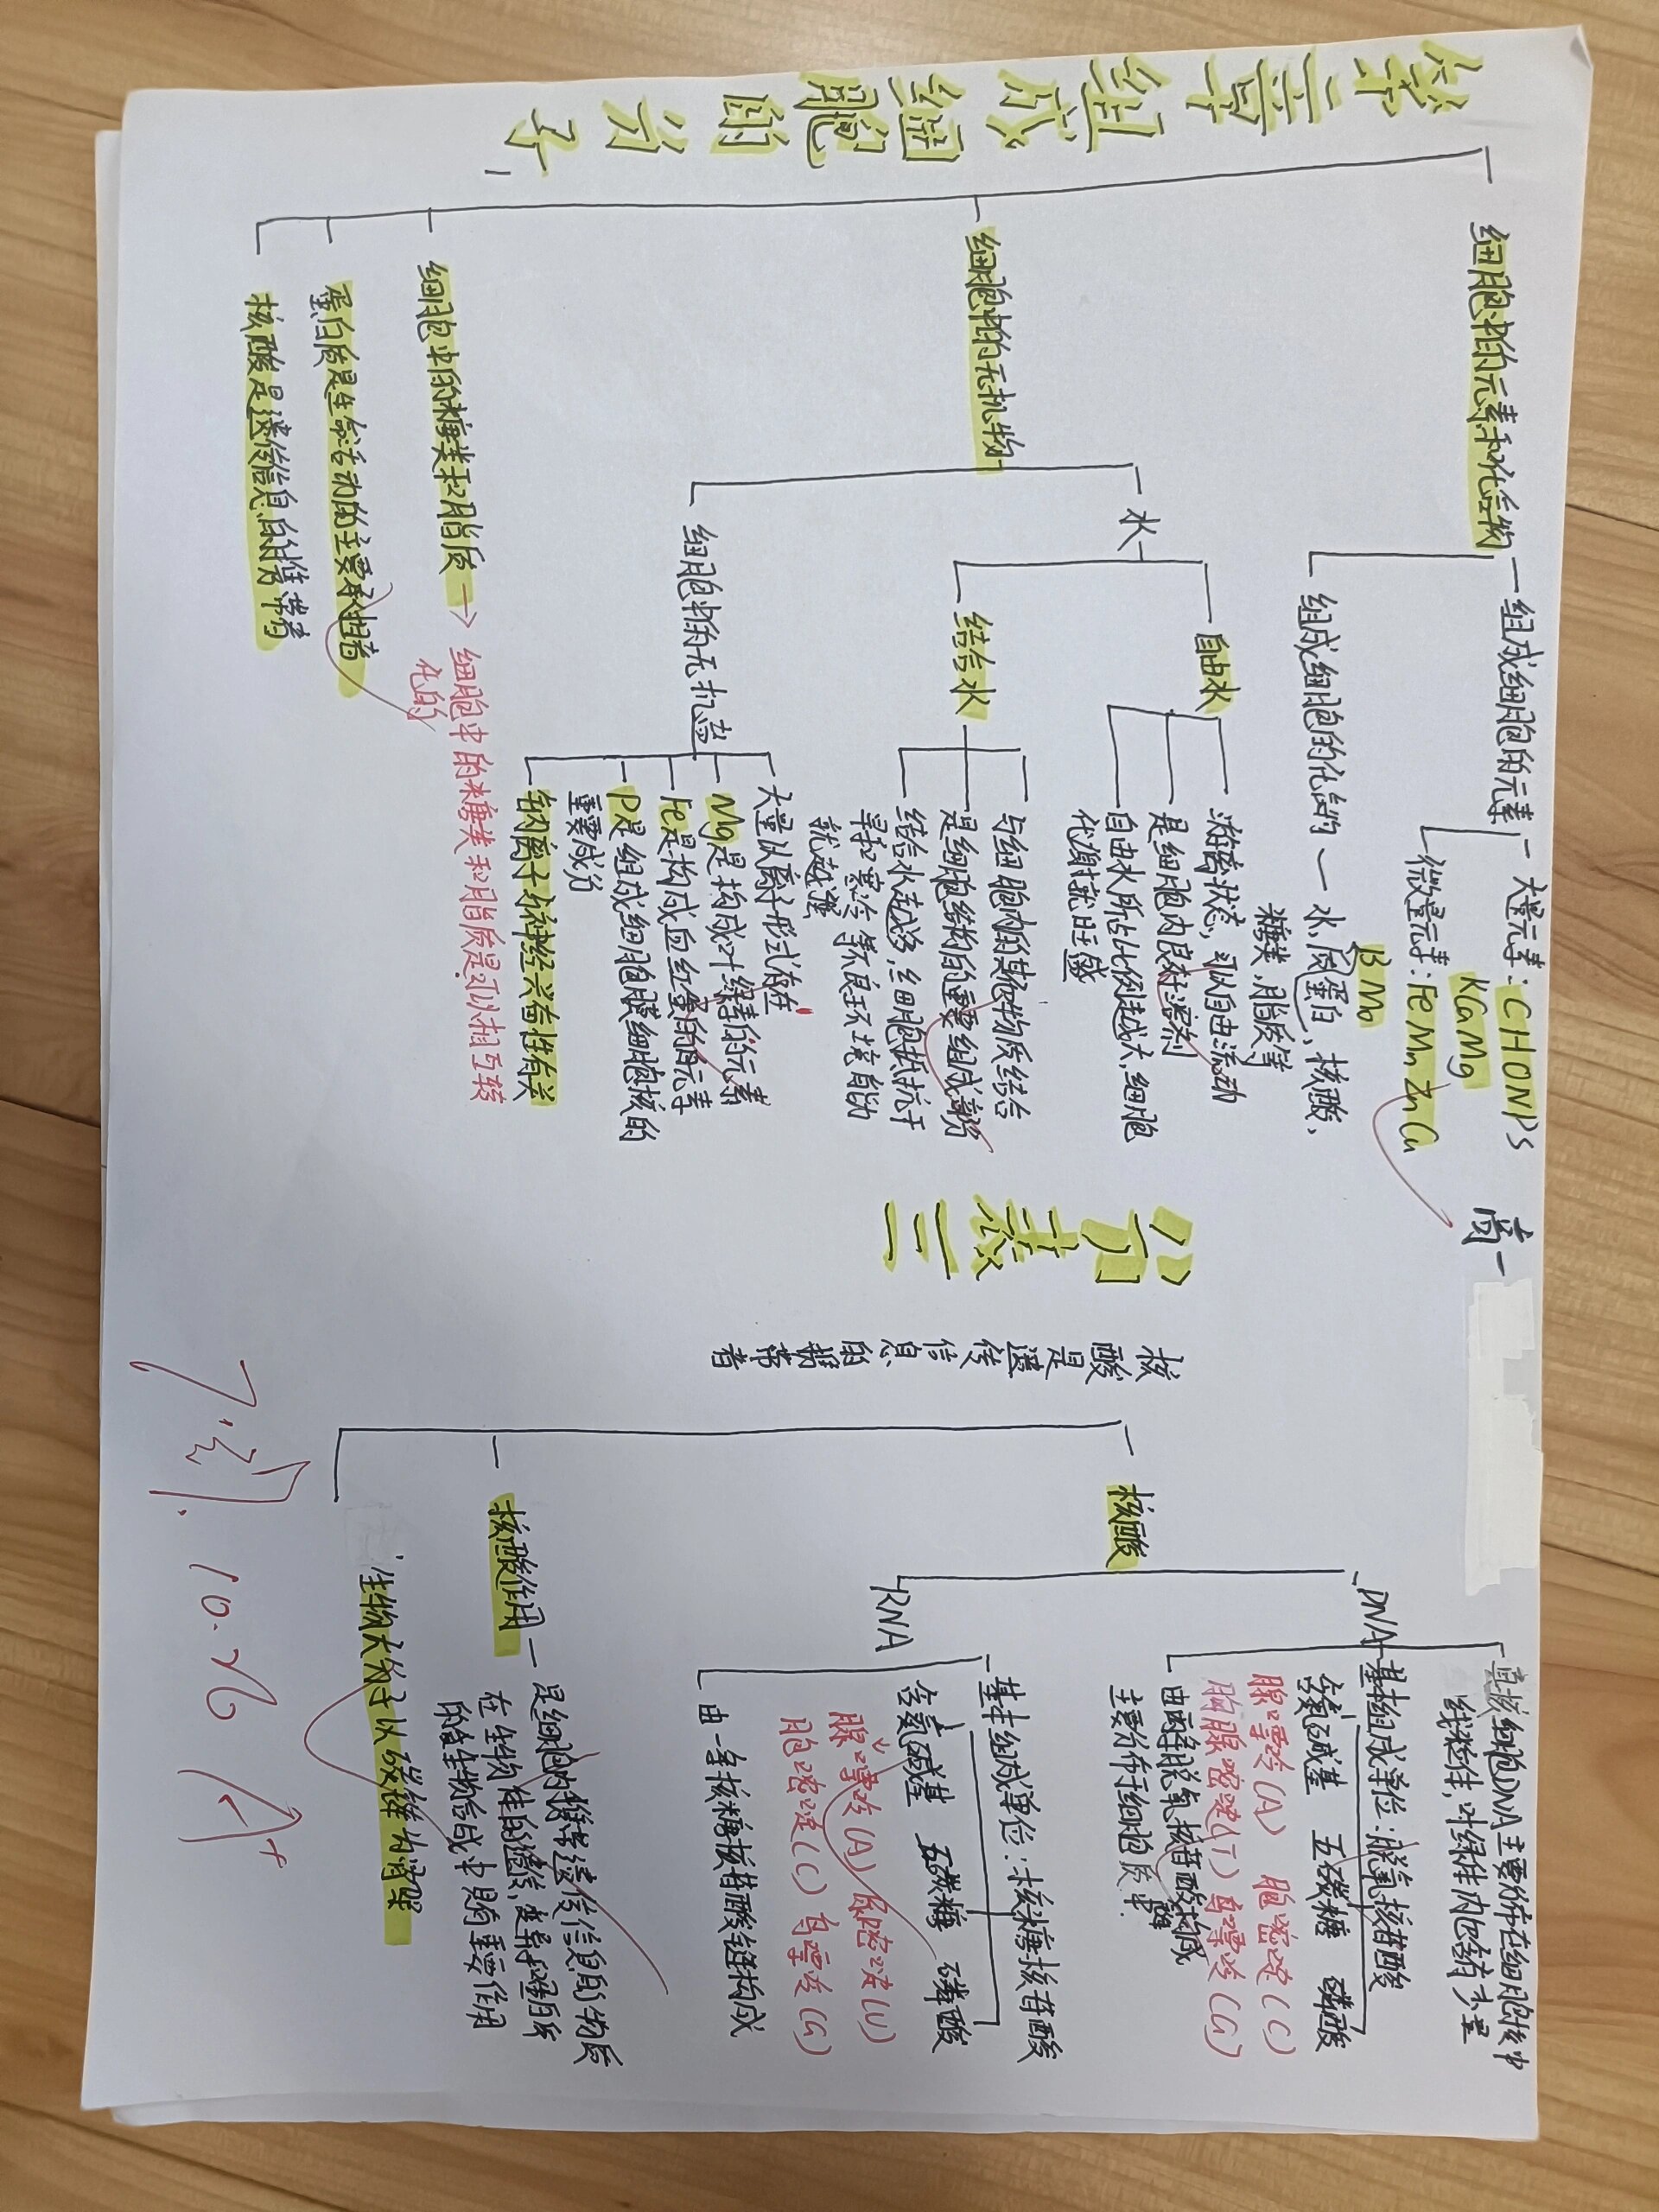 第二章 组成细胞的分子
细胞中的元素和化合物
组成细胞的元素
大量元素：CHONPS
KCaMg
微量元素：FeMnZnCu
BMo
组成细胞的化合的
水，质蛋白，核酸，
糖类，脂质等
细胞中的无机物
水
自由水
游离状态，可以自由流动
是细胞内良好溶剂
自由水所占比例越大，细胞
代谢就旺盛
结合水
与细胞内的其他物质结合
是细胞结构的重要组成部分
结合水越多，细胞抵抗干
旱和寒冷等不良环境的能力
就越强
细胞中的无机盐
大量以离子形式存在
Mg是构成叶绿素的元素
Fe是构成血红蛋白的元素
P是组成细胞膜细胞核的
重要成分
钠离子与神经兴奋性有关
细胞中的糖类和脂质
细胞中的糖类和脂质是可以相互转
化的
蛋白质是生命活动的主要承担者
核酸是遗传信息的携带者
高一
核酸是遗传信息的携带者
核酸
DNA
真核细胞DNA主要分布在细胞核中
线粒体，叶绿体内也含有少量
基本组成单位：脱氧核苷酸
含氮碱基 五碳糖 磷酸
腺嘌呤(A) 胞嘧啶(C)
胸腺嘧啶(T) 鸟嘌呤(G)
由两条脱氧核苷酸链构成
RNA
主要分布于细胞质中
基本组成单位：核糖核苷酸
含氮碱基 五碳糖 磷酸
腺嘌呤(A) 尿嘧啶(U)
胞嘧啶(C) 鸟嘌呤(G)
由一条核糖核苷酸链构成
核酸作用
是细胞内携带遗传信息的物质
在生物体的遗传，变异和蛋白质
的生物合成中具有重要作用
生物大分子以碳链为骨架
10.26 A+